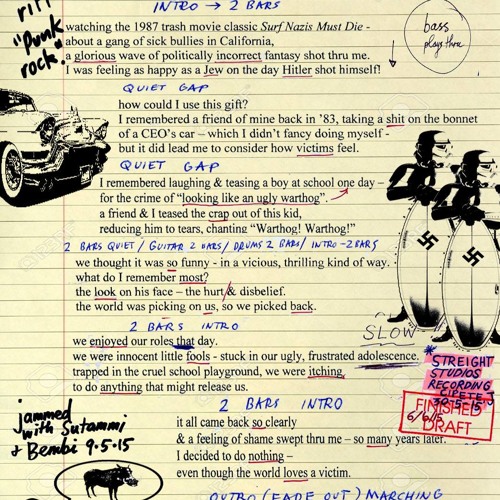 INTRO → 2 BARS
riff
"punk rock"
bass
plays thru
watching the 1987 trash movie classic Surf Nazis Must Die -
about a gang of sick bullies in California,
a glorious wave of politically incorrect fantasy shot thru me.
I was feeling as happy as a Jew on the day Hitler shot himself!
QUIET GAP
how could I use this gift?
I remembered a friend of mine back in '83, taking a shit on the bonnet
of a CEO's car – which I didn't fancy doing myself -
but it did lead me to consider how victims feel.
QUIET GAP
I remembered laughing & teasing a boy at school one day –
for the crime of "looking like an ugly warthog".
a friend & I teased the crap out of this kid,
reducing him to tears, chanting "Warthog! Warthog!"
2 BARS QUIET / GUITAR 2 BARS / DRUMS 2 BARS / INTRO - 2 BARS
we thought it was so funny - in a vicious, thrilling kind of way.
what do I remember most?
the look on his face – the hurt & disbelief.
the world was picking on us, so we picked back.
2 BARS INTRO
SLOW
we enjoyed our roles that day.
we were innocent little fools - stuck in our ugly, frustrated adolescence.
trapped in the cruel school playground, we were itching
to do anything that might release us.
* STREIGHT
STUDIOS
RECORDING
CIPETE J
30-5-15
FINISHED
6/6/15
DRAFT
2 BARS INTRO
jammed
with Sutammi
+ Bembi 9-5-15
it all came back so clearly
& a feeling of shame swept thru me – so many years later.
I decided to do nothing –
even though the world loves a victim.
OUTRO (FADE OUT) MARCHING